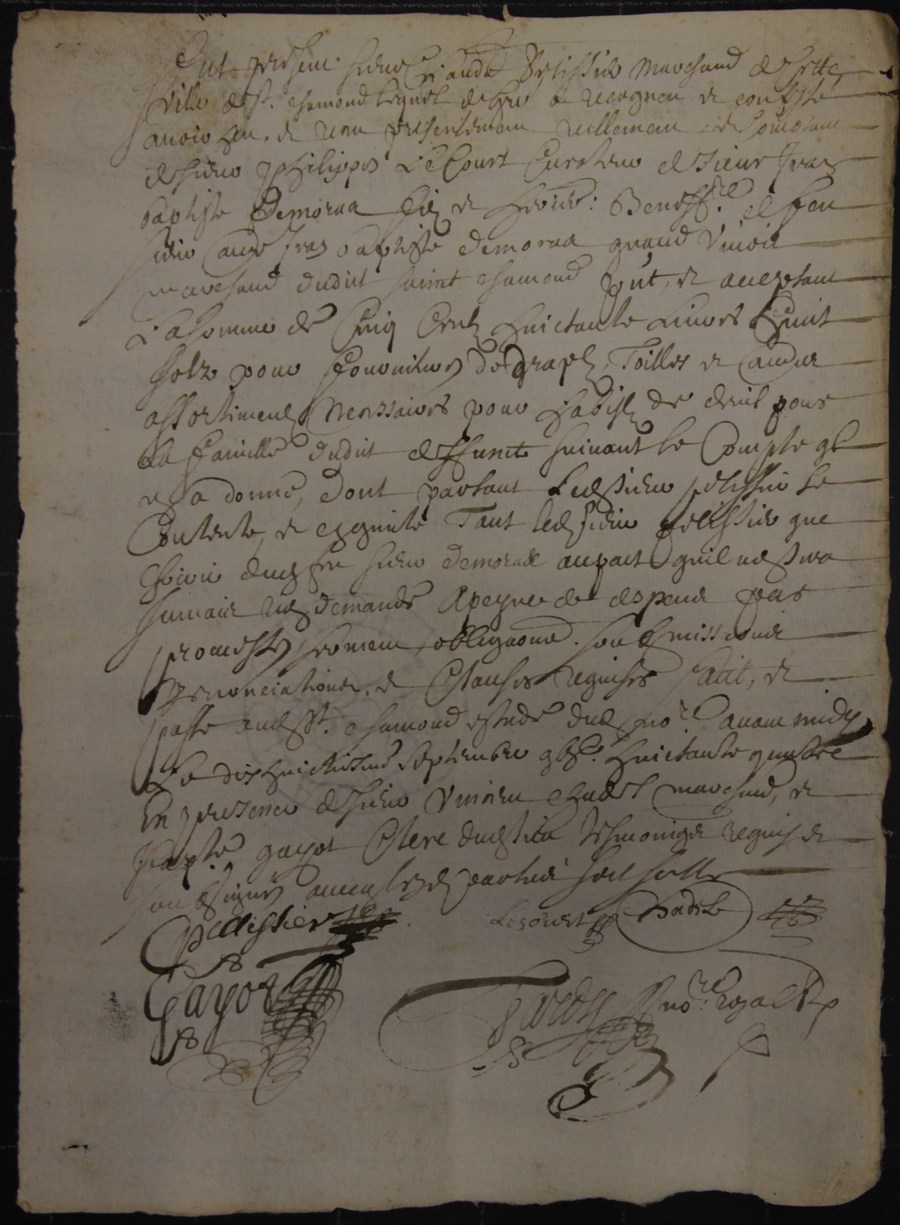 Fut present sieur Claude Pelissier marchand de cette
ville de St. Chamond lequel de gre a recogneu et confesse
avoir heu et receu presentement reellement et comptant
de sieur Philippes Lecourt curateur de sieur Jean
Baptiste Demoraa filz et heritier Beneff.re de feu
sieur Jean baptiste Demoraa quand vivoit
marchand dudit sainct Chamond present, et acceptant
La somme de Cinq Centz huictante Livres huict
solz pour fourniture de drapz, Toilles et autres
assortimentz necessaires pour habitz de deuil pour
La famille dudit deffunct suivant le Compte qe
en a donné, dont partant Ledt sieur pelissier se
Contente, et en quitte Tant ledt sieur pelissier que
hoirie dudt feu sieur Demoraa aupact quil ne sera
jamais rien demandé Apeyne de despens par
promesses serment, obligaons. soubmissions
Renonciations, et Clauses requises faict, et
passé audt St. Chamond estude dudt no.re avant midy
Le dixhuictiesme septembre huictante quattre
En presence de sieur marchand, et
gayot Clerc tesmoings requis et
soubsignés avec lesd parties
CPellissier Lecourt
Gayot
Tardy no.re Royal